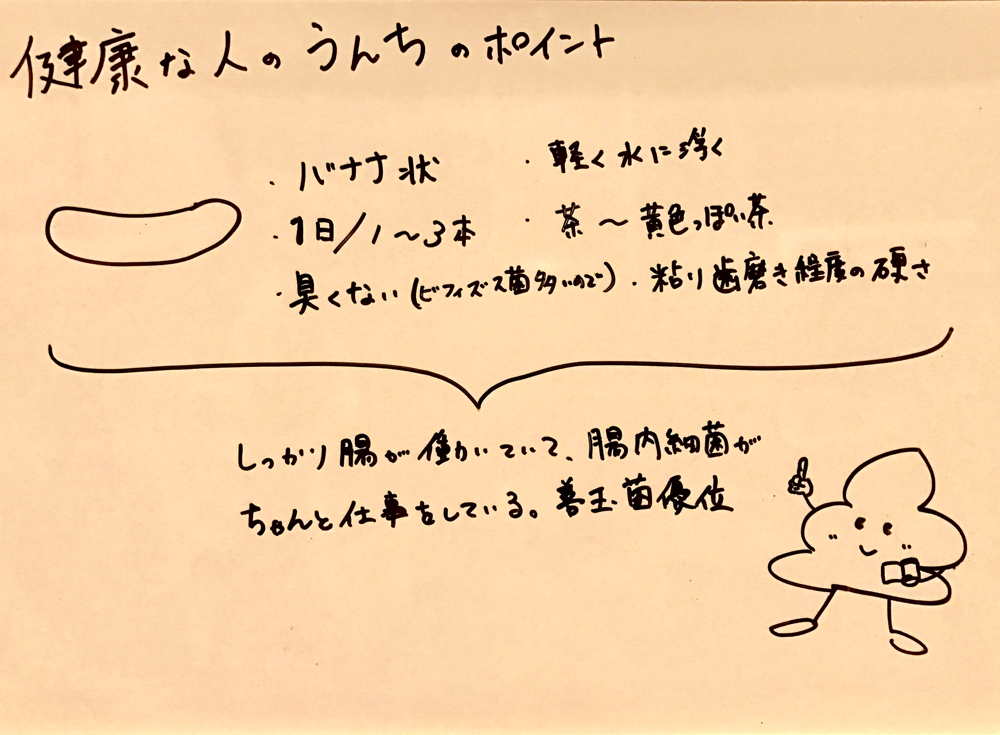 健康な人のうんちのポイント
・バナナ状
・1日/1〜3本
・臭くない(ビフィズス菌多いので)
・軽く水に浮く
・茶〜黄色っぽい茶
・粘り歯磨き程度の硬さ
しっかり腸が働いていて、腸内細菌が
ちゃんと仕事をしている。善玉菌優位